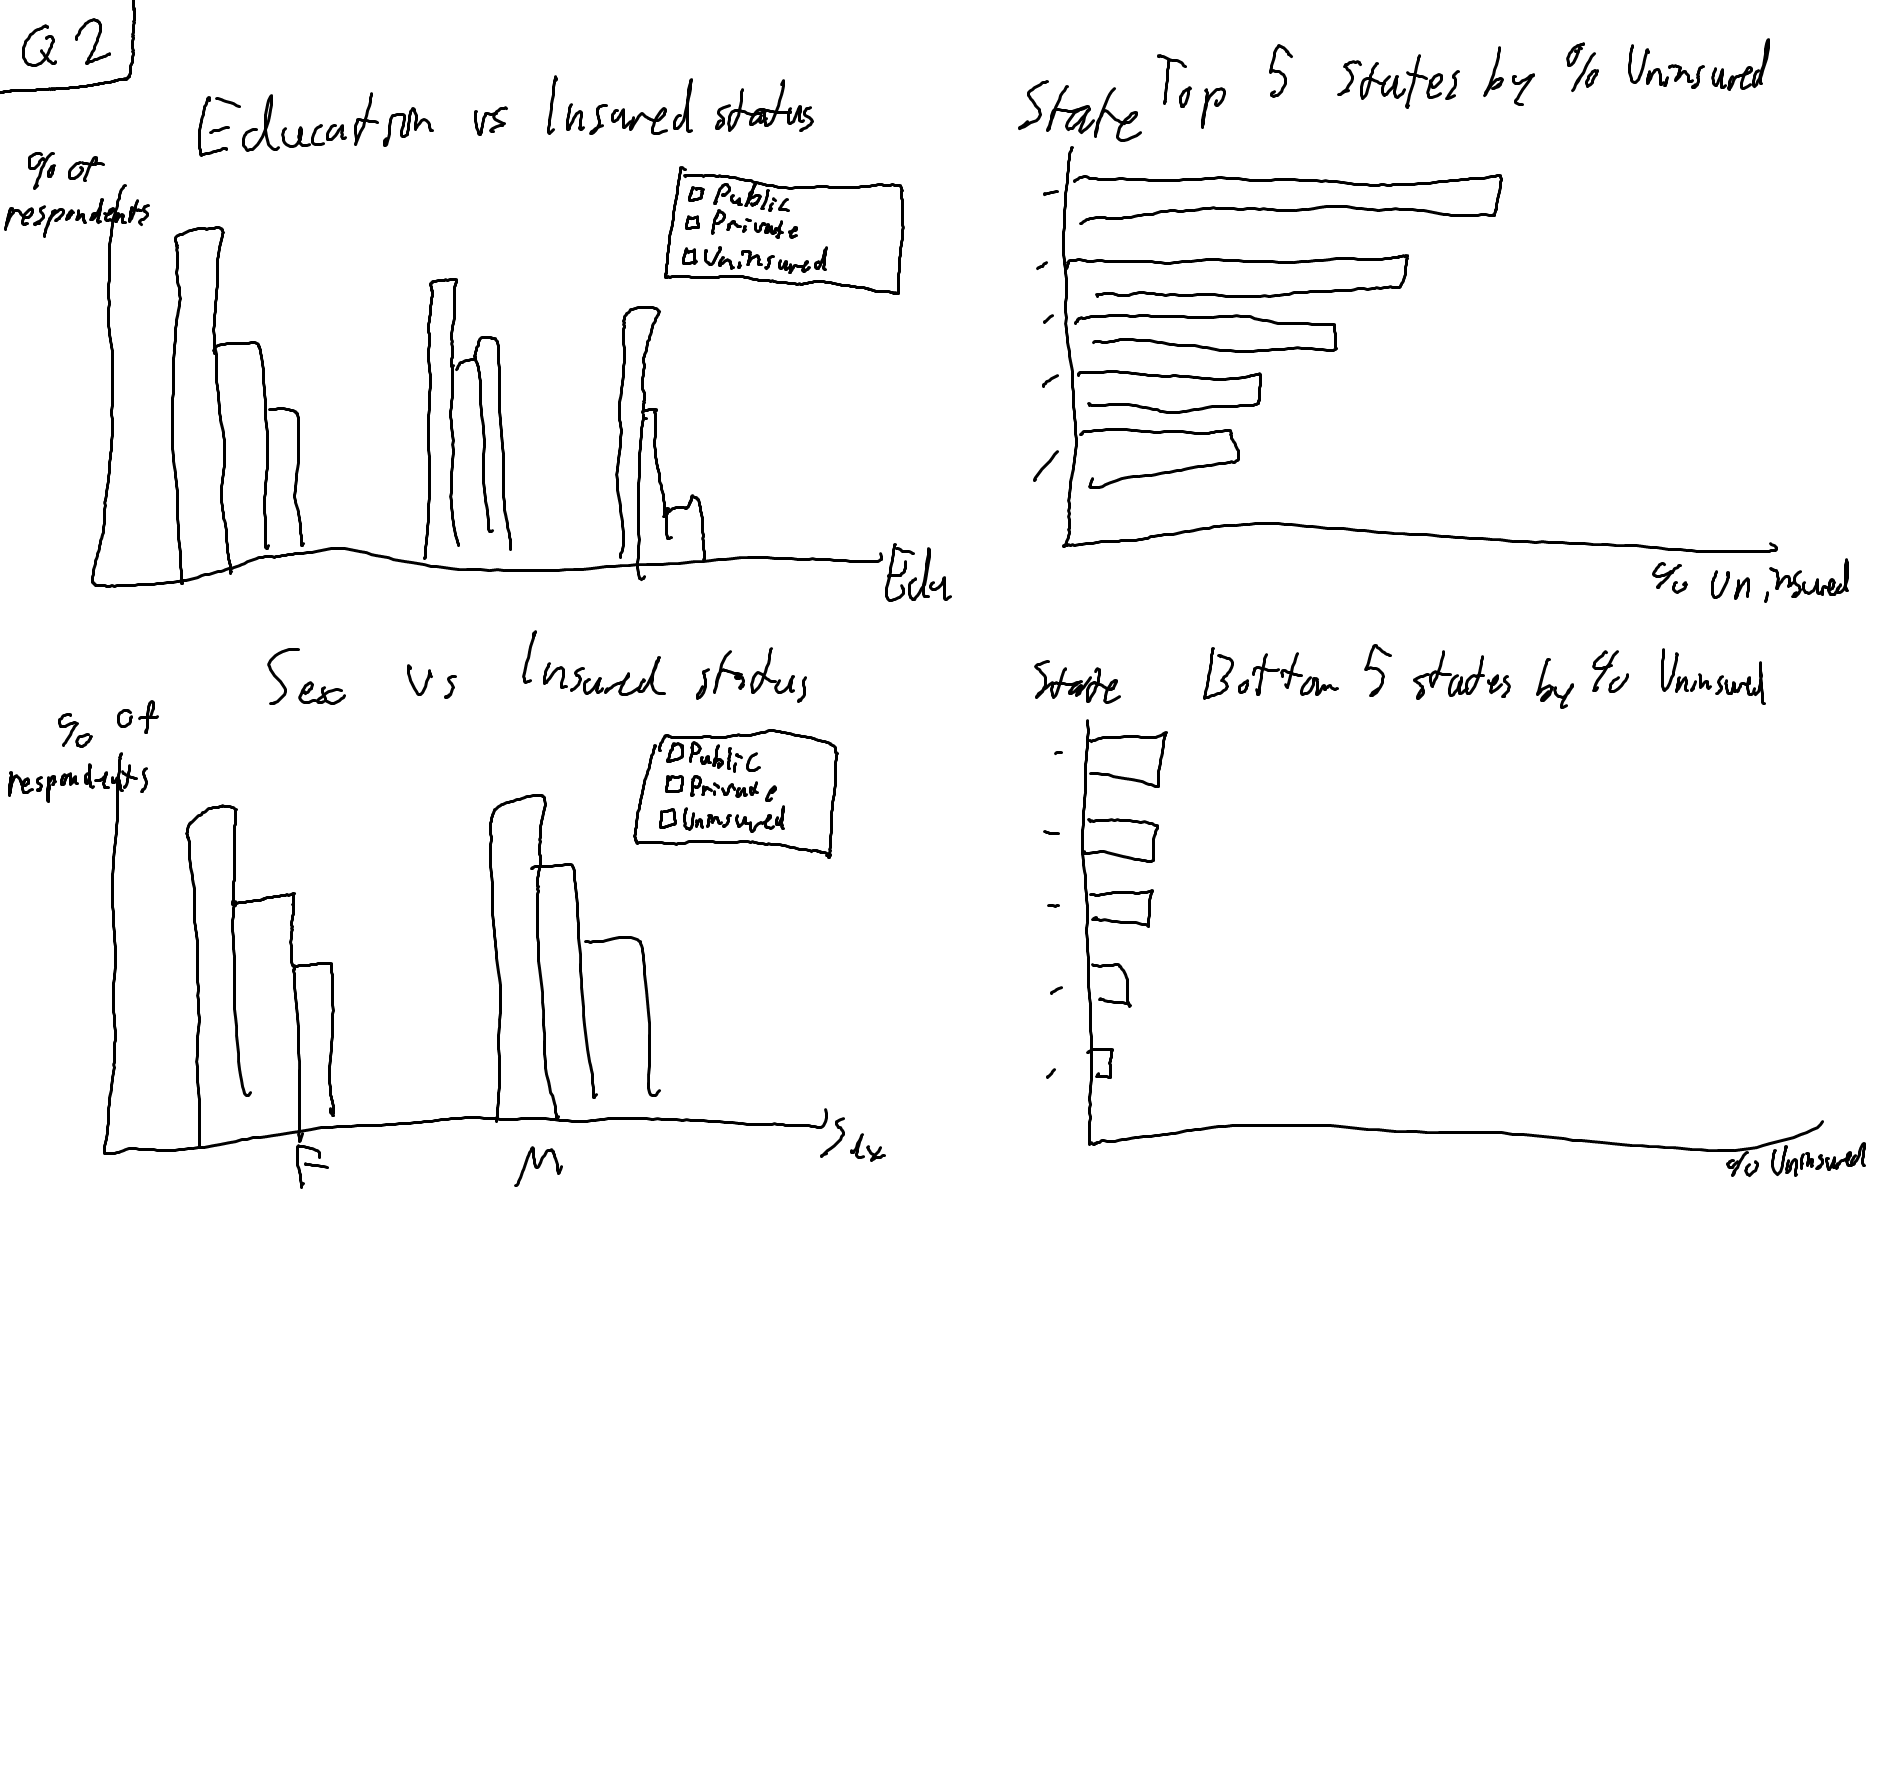 Q2
Education vs Insured status
% of
respondents
Public
Private
Uninsured
Edu
State
Top 5 states by % Uninsured
% Uninsured
Sex vs Insured status
% of
respondents
Public
Private
Uninsured
F
M
Sex
State
Bottom 5 states by % Uninsured
% Uninsured